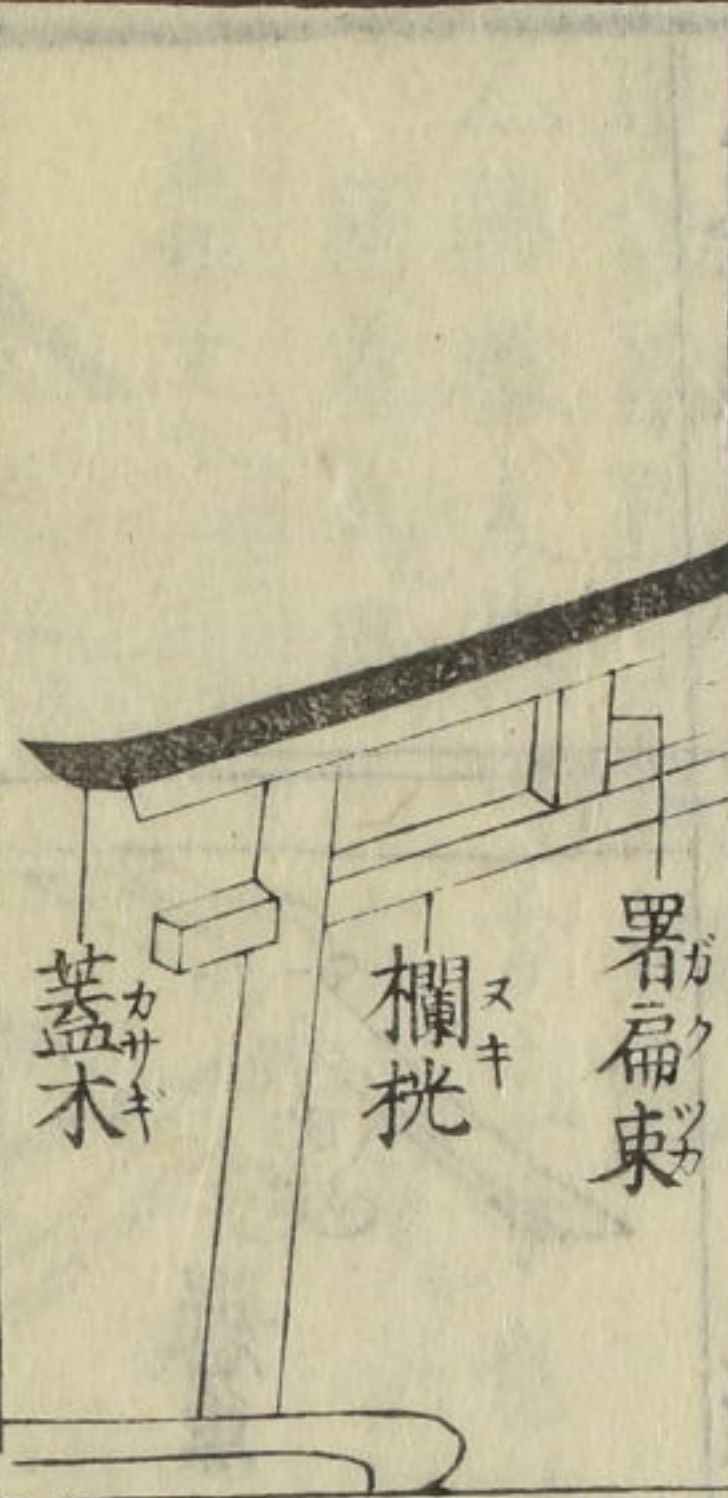 署扁束
ガクヅカ
欄桄
ヌキ
蓋木
カサギ